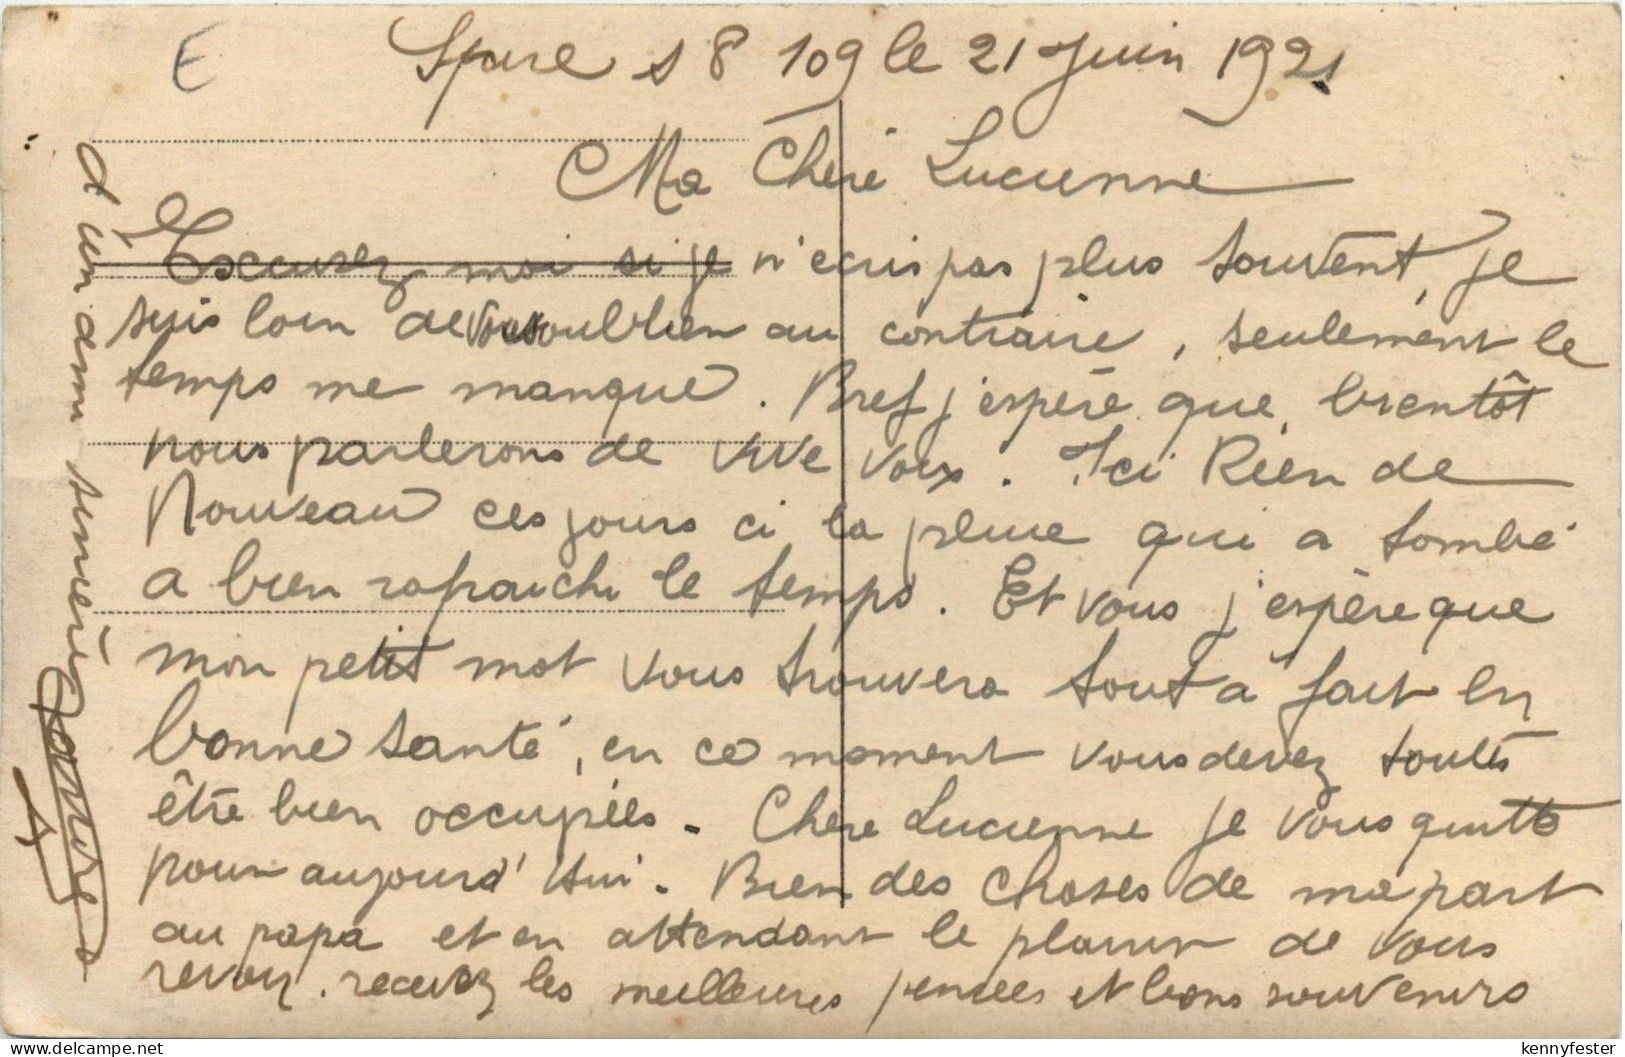 E
le 21 Juin 1921
Ma Chere Lucienne
Excusez moi si je n'ecris pas plus souvent, je
suis loin de vous oublier au contraire, seulement le
temps me manque. Bref j'espère que bientôt
nous parlerons de vive voix. Ici Rien de
Nouveau ces jours ci la pluie qui a tombé
a bien rafraichi le temps. Et vous j'espère que
mon petit mot vous trouvera tout à fait en
bonne santé, en ce moment vous devez toutes
être bien occupées. Chere Lucienne je vous quitte
pour aujourd'hui. Bien des choses de ma part
au papa et en attendant le plaisir de vous
revoir. recevez les meilleures pensées et bons souvenirs
d'un ami sincère
delcampe.net
kennyfester